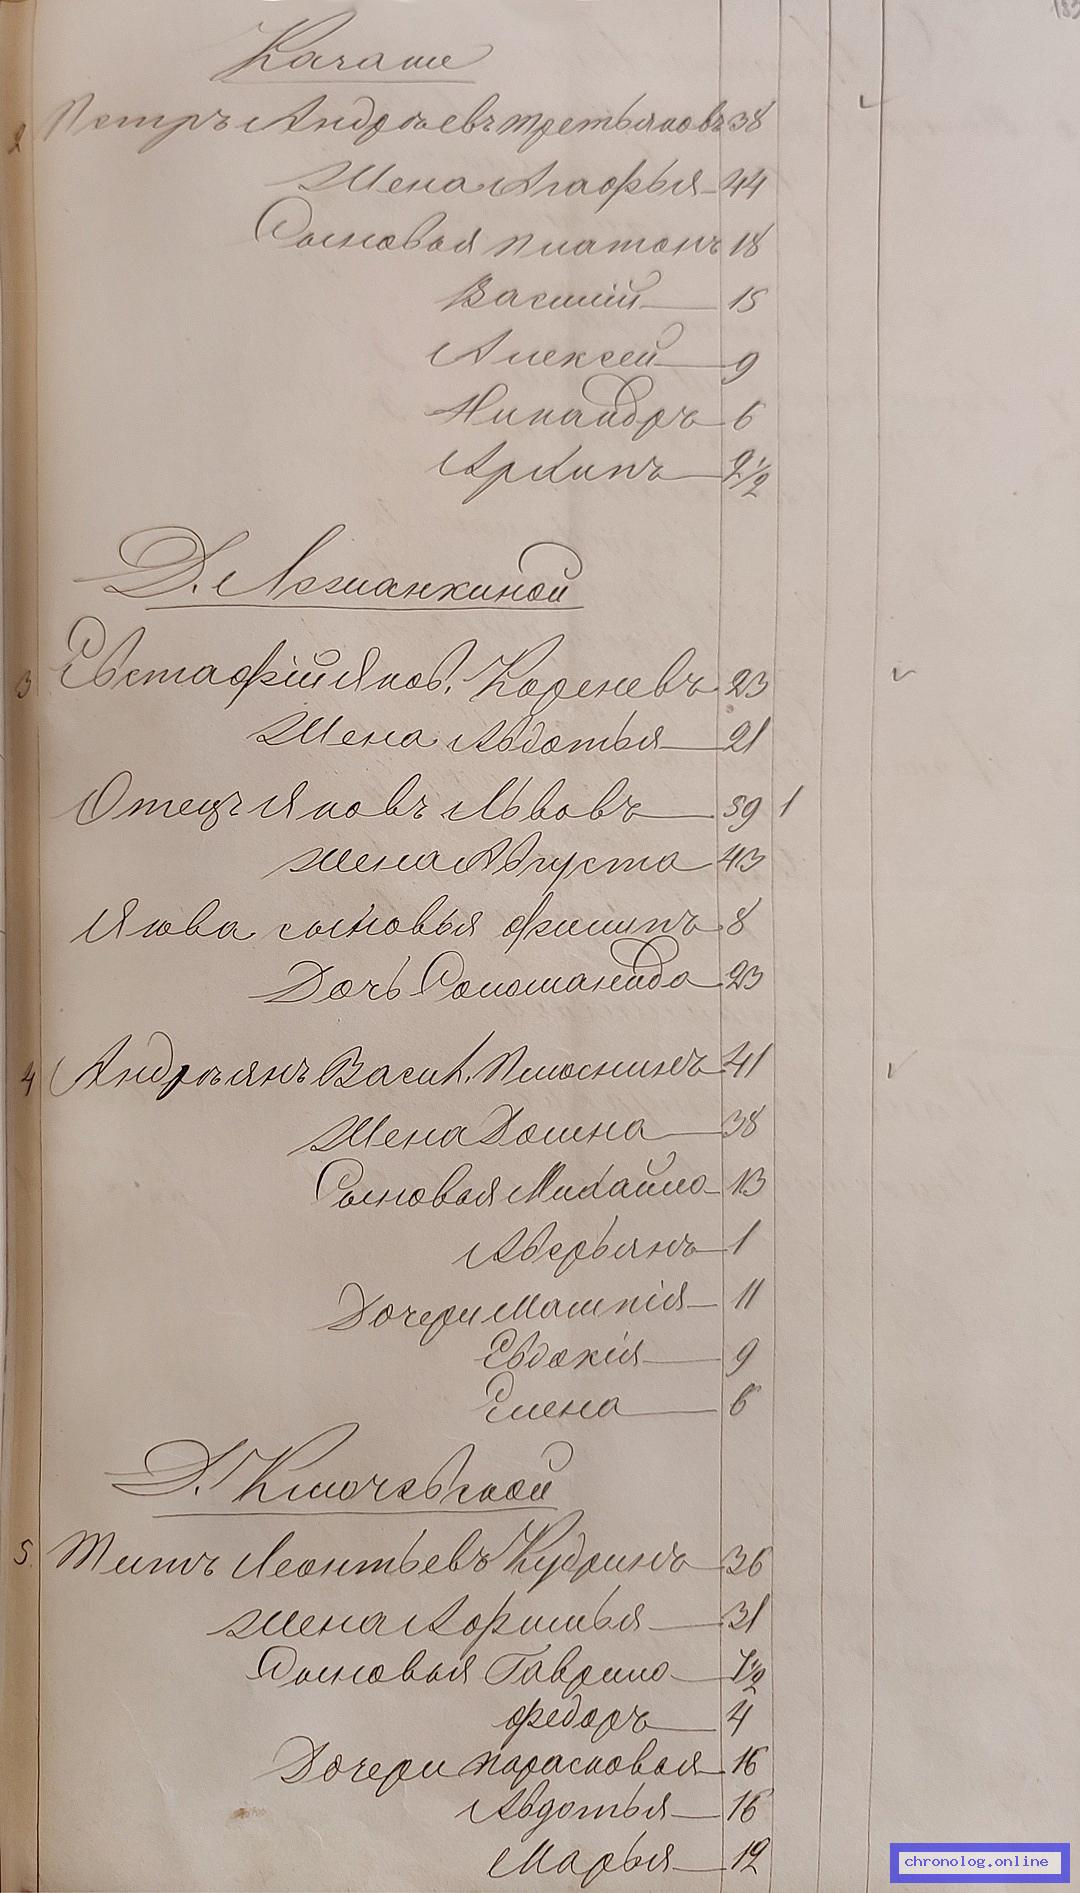 Качаше
2 Петръ Андрѣевъ Третьяковъ 38
Жена Агафья 44
Сыновья Платонъ 18
Василій 15
Алексей 9
Никандръ 6
Архипъ 2½
Д. Логманкиной
3 Евстафій Яков. Кореневъ 23
Жена Авдотья 21
Отецъ Яковъ Львовъ 59 1
Жена Августа 43
Якова сыновья Филипъ 8
Дочь Соломанида 23
4 Андрѣянъ Васил. Плюснинъ 41
Жена Домна 38
Сыновья Михайло 13
Аверьянъ 1
Дочери 11
Евдокія 9
Елена 6
Д. Ключевской
5. Титъ Леонтьевъ Кудринъ 36
Жена Афимья 31
Сыновья Гаврило 7½
Федоръ 4
Дочери Парасковья 16
Авдотья 16
Марья 12
chronolog.online